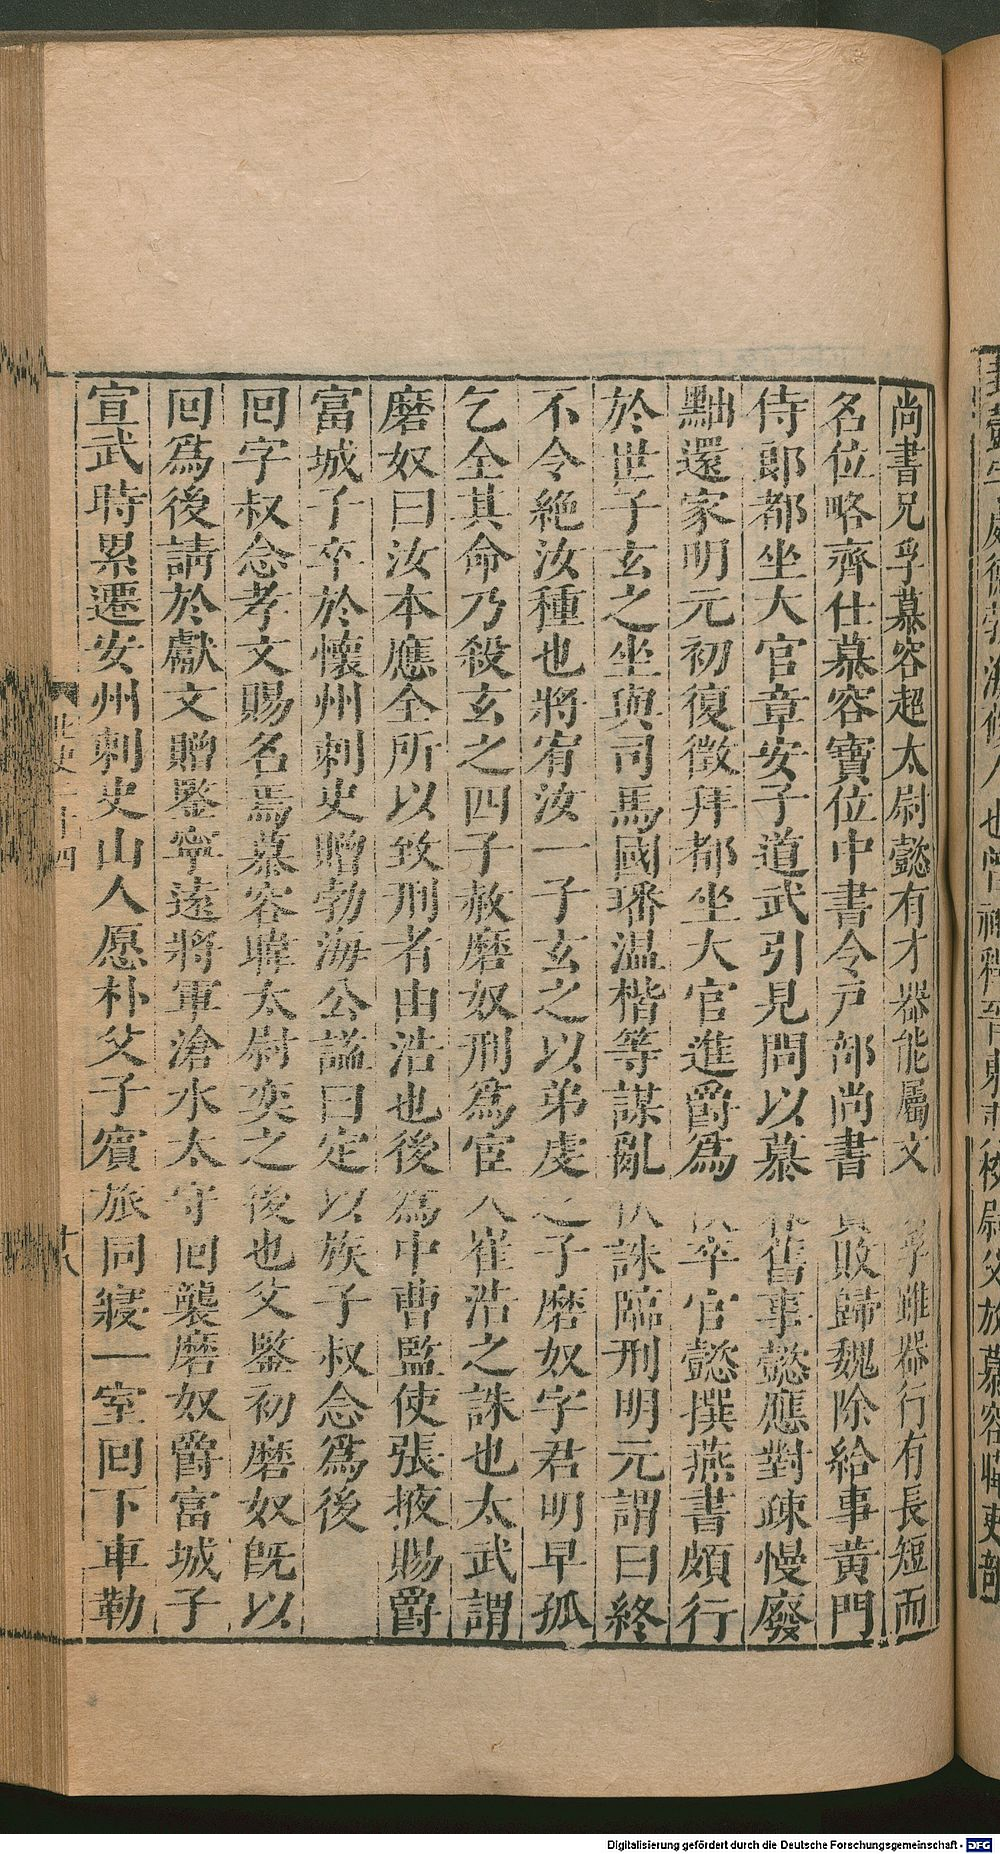 尚書兄孚慕容超太尉懿有才器能屬文孚雖器行有長短而
名位略齊仕慕容寶位中書令戶部尚書敗歸魏除給事黃門
侍郎都坐大官章安子道武引見問以慕舊事懿應對疎慢廢
黜還家明元初復徵拜都坐大官進爵為卒官懿撰燕書頗行
於世子玄之坐與司馬國璠温楷等謀亂伏誅臨刑明元謂曰終
不令絶汝種也將宥汝一子玄之以弟虔之子磨奴字君明早孤
乞全其命乃殺玄之四子赦磨奴刑為宦人崔浩之誅也太武謂
磨奴曰汝本應全所以致刑者由浩也後為中曹監使張掖賜爵
富城子卒於懷州刺史贈勃海公謚曰定以族子叔念為後
回字叔念孝文賜名焉慕容暐太尉奕之後也父鑒初磨奴旣以
回爲後請於獻文贈鑒寧遠將軍滄水太守回襲磨奴爵富城子
宣武時累遷安州刺史山人愿朴父子賓旅同寢一室回下車勒
十八
Digitalisierung gefördert durch die Deutsche Forschungsgemeinschaft - DFG